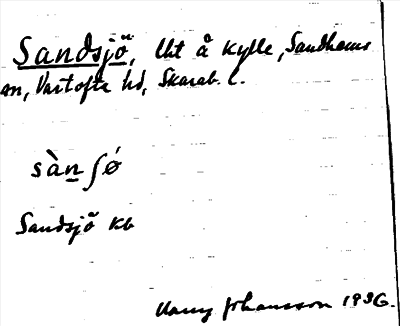 Sandsjö, lht å Kylle, Sandhems
sn, Vartofte hd, Skarab. l.
sàn̲ʃǿ
Sandsjö kb
Harry Johansson 1936.